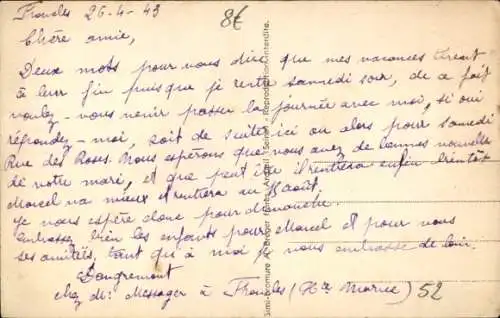 Froncles 26-4-43
8€
Chère amie,
Deux mots pour vous dire que mes vacances tirent
à leur fin puisque je rentre samedi soir, de ce fait
voulez-vous venir passer la journée avec moi, si oui
répondez-moi, soit de suite ici ou alors pour samedi
Rue des Roses. Nous espérons que vous avez de bonnes nouvelles
de votre mari, et que peut être il rentrera enfin bientôt
Marcel va mieux et rentrera au août.
Je vous espère donc pour dimanche.
Embrassez bien les enfants pour Marcel et pour vous
ses amitiés, tant qu'à moi je vous embrasse de loin.
Dangremont
chez Mr Messager à Froncles (Hte Marne)
52
Réproduction Interdite.